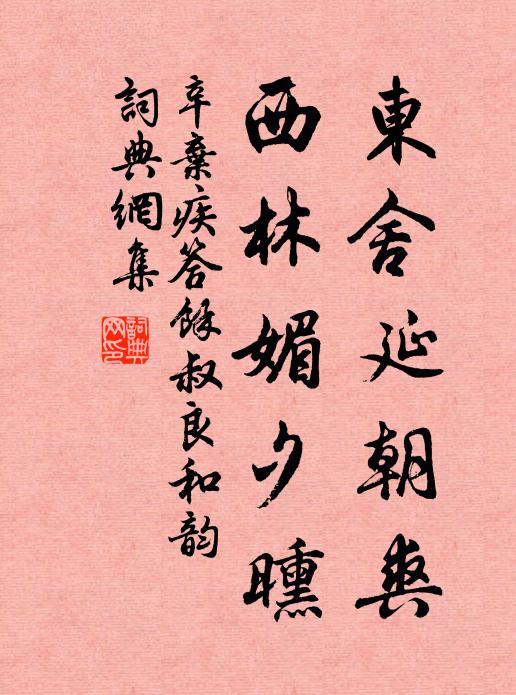 東舍延朝爽
西林媚夕曛
辛棄疾答餘叔良和韵
詞典網集
詞典网印